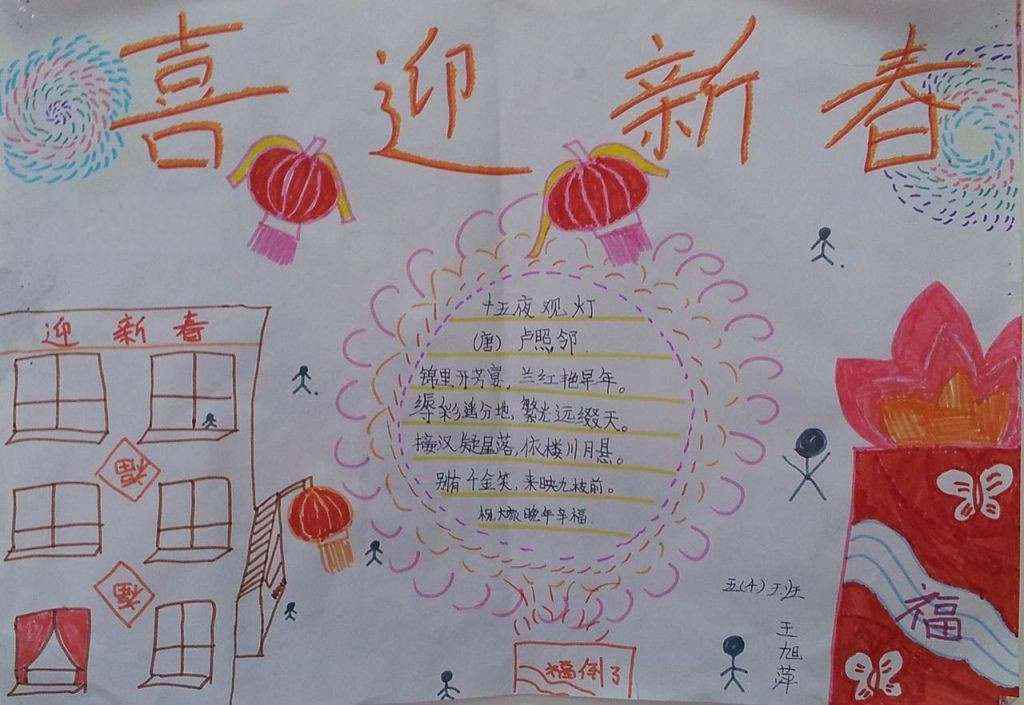 喜迎新春
迎新春
十五夜观灯
(唐) 卢照邻
锦里开芳宴,兰红艳早年。
缛彩遥分地,繁光远缀天。
接汉疑星落,依楼似月悬。
别有千金笑,来映九枝前。
祝大家晚年幸福.
福
福
福
福倒了
五(4)班
王旭萍